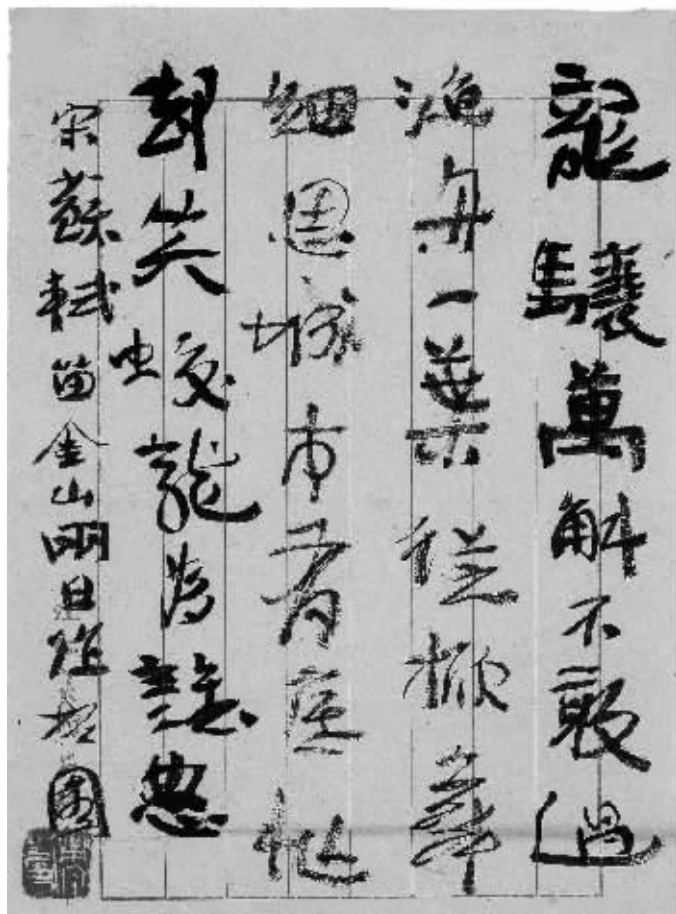 龍驤萬斛不敢過
漁舟一葉從掀舞
細思城市有底忙
却笑蛟龍為誰怒
宋蘇軾留金山日